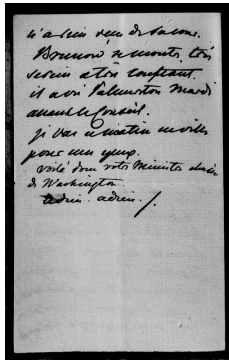 n'a rien reçu de Vienne.
Brunnow se montre très
serein et très confiant.
il a vu Palmerston Mardi
avant le Conseil.
je vais ce matin en ville
pour mes yeux.
voilà donc votre Ministre
de Washington.
adieu. adieu.